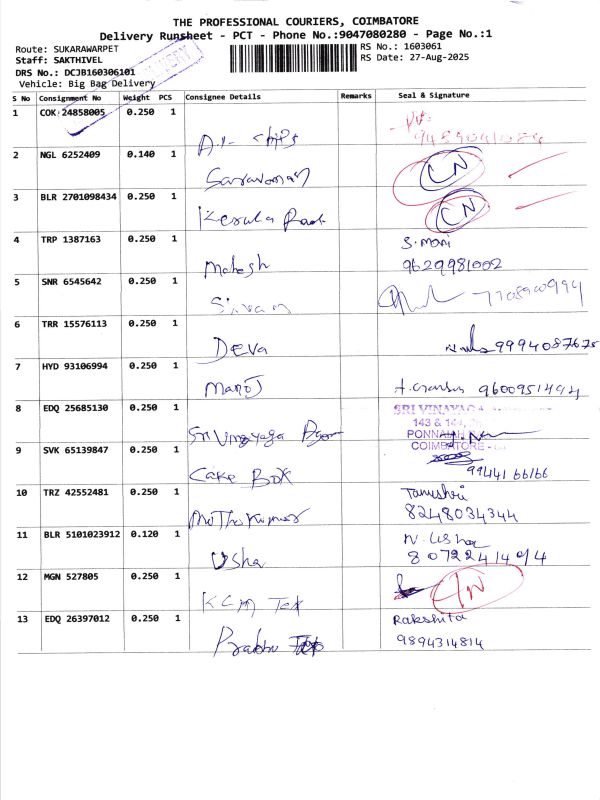 THE PROFESSIONAL COURIERS, COIMBATORE
Delivery Runsheet - PCT - Phone No.:9047080280 - Page No.:1
Route: SUKARAWARPET
RS No.: 1603061
Staff: SAKTHIVEL
RS Date: 27-Aug-2025
DRS No.: DCJB160306101
Vehicle: Big Bag Delivery
S No Consignment No Weight PCS Consignee Details Remarks Seal & Signature
1 COK 24858005 0.250 1
2 NGL 6252409 0.140 1 Saravanan CN
3 BLR 2701098434 0.250 1 Kerala CN
4 TRP 1387163 0.250 1 Mahesh S. Mani
9629981002
5 SNR 6545642 0.250 1 Sivam
6 TRR 15576113 0.250 1 Deva 9994087675
7 HYD 93106994 0.250 1 Manoj
8 EDQ 25685130 0.250 1 Sri Vinayaga SRI VINAYAGA
143 &
PONNAIAH
COIMBATORE
9 SVK 65139847 0.250 1 Cake Box 99441 66166
10 TRZ 42552481 0.250 1 Muthukumar Tanushri
8248034344
11 BLR 5101023912 0.120 1 Usha N. Usha
8072241404
12 MGN 527805 0.250 1 KCM Tex
13 EDQ 26397012 0.250 1 Prabhu Tex Rakshita
9894314814